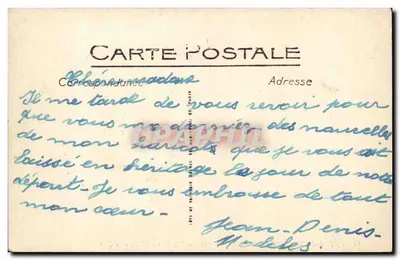 CARTE POSTALE
Chère madame
Correspondance Adresse
Il me tarde de vous revoir pour
que vous me donniez des nouvelles
de mon que je vous ait
laissé en héritage le jour de notre
départ - Je vous embrasse de tout
mon cœur -
Jean-Denis